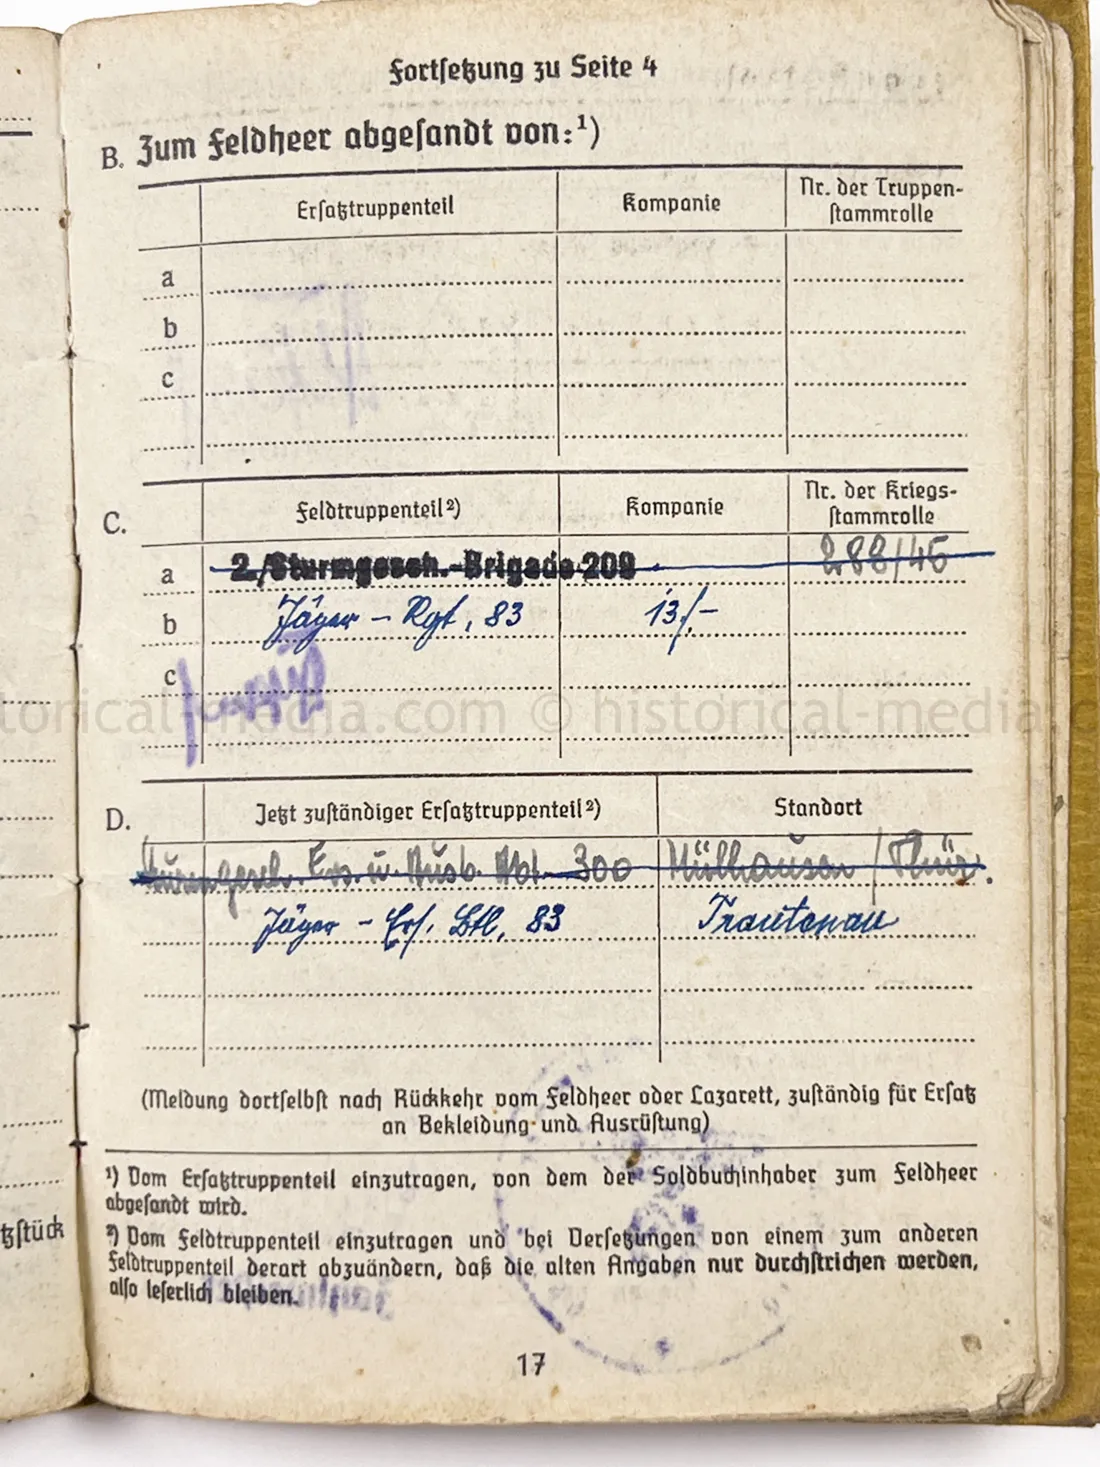 Fortsetzung zu Seite 4
B. Zum Feldheer abgesandt von:¹)
Ersatztruppenteil Kompanie Nr. der Truppen-
stammrolle
a
b
c
C. Feldtruppenteil²) Kompanie Nr. der Kriegs-
stammrolle
a 2./Sturmgesch.-Brigade 209 288/45
b Jäger - Rgt. 83 13./-
c
historical-media.com © historical-media.c
D. Jetzt zuständiger Ersatztruppenteil²) Standort
Sturmgesch. Ers. u. Ausb. Abt. 300 Mülhausen / Thür.
Jäger - Ers. Btl. 83 Trautenau
(Meldung dortselbst nach Rückkehr vom Feldheer oder Lazarett, zuständig für Ersatz
an Bekleidung und Ausrüstung)
¹) Vom Ersatztruppenteil einzutragen, von dem der Soldbuchinhaber zum Feldheer
abgesandt wird.
²) Vom Feldtruppenteil einzutragen und bei Versetzungen von einem zum anderen
tzstück
Feldtruppenteil derart abzuändern, daß die alten Angaben nur durchstrichen werden,
also leserlich bleiben.
17